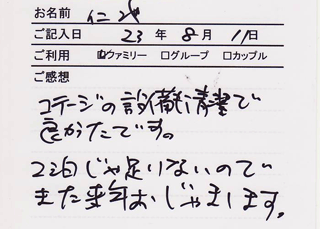 お名前
ご記入日 23年8月11日
ご利用 ☑ファミリー □グループ □カップル
ご感想
コテージの設備も清潔で
良かたです。
2泊じゃ足りないので
また来年おじゃまします。